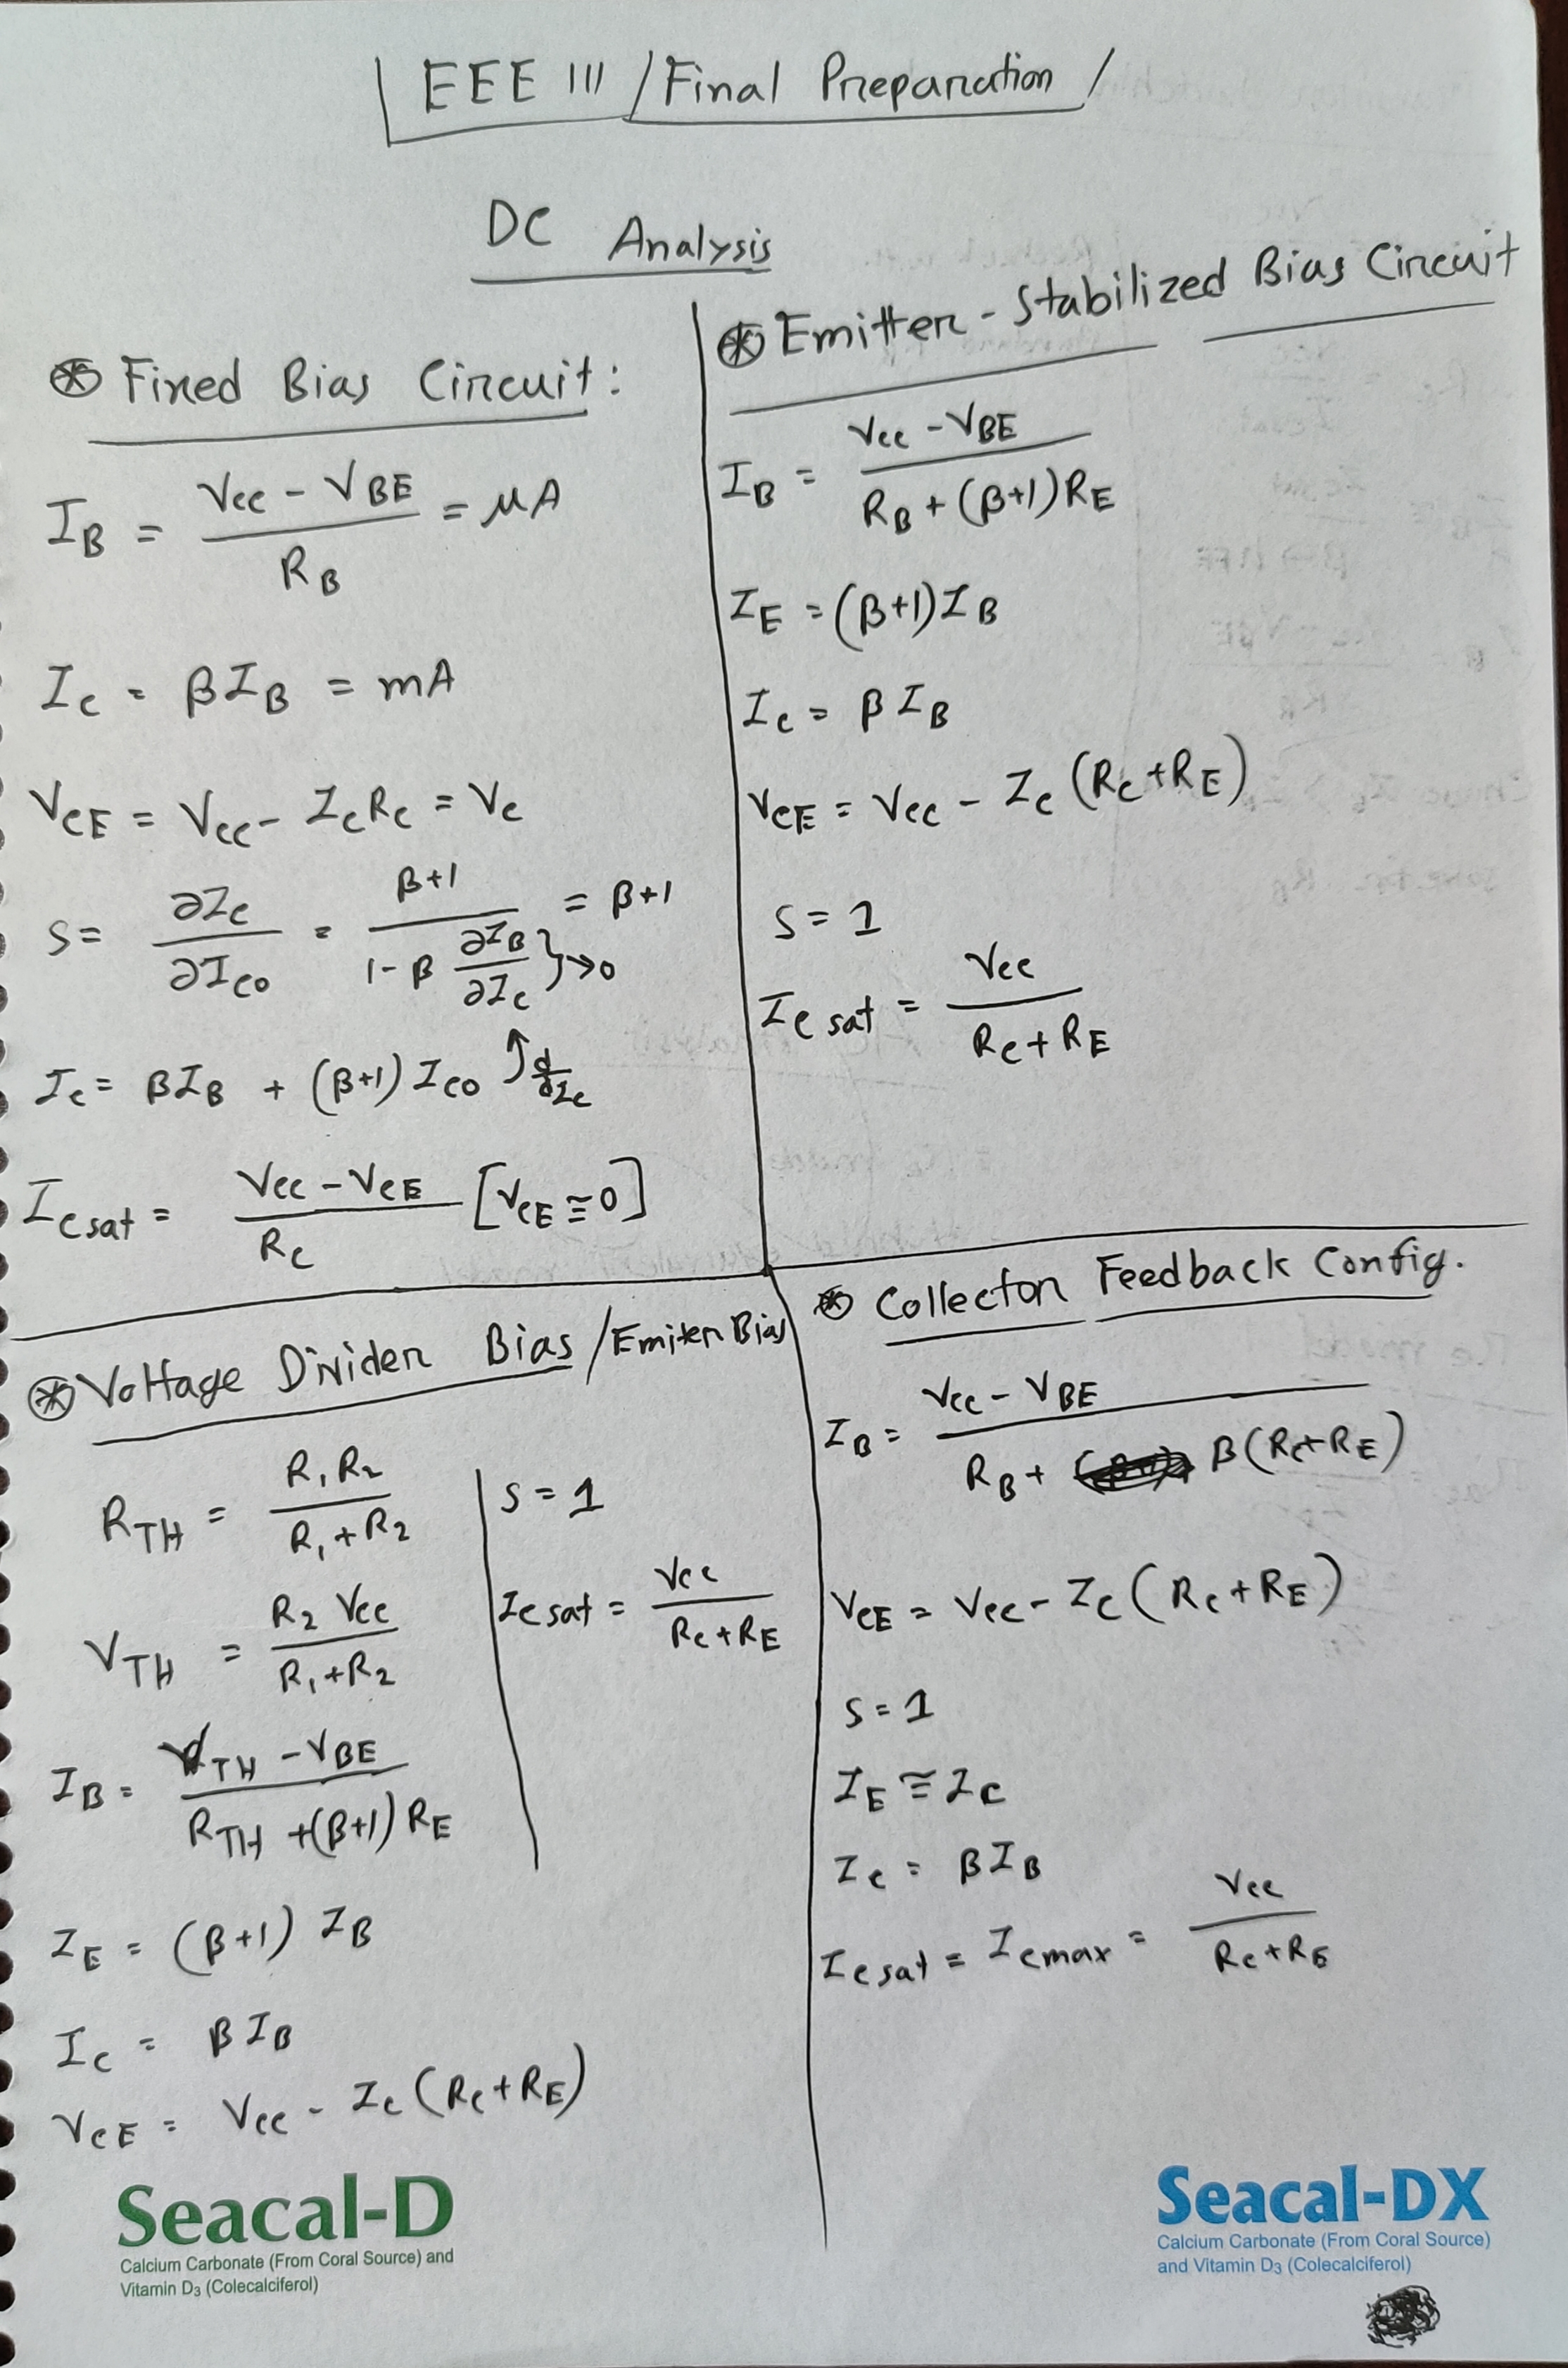 EEE 111 / Final Preparation /
DC Analysis
⊛ Fixed Bias Circuit:
I_B = (V_CC - V_BE) / R_B = μA
I_C = βI_B = mA
V_CE = V_CC - I_C R_C = V_C
S = ∂I_C / ∂I_CO = (β+1) / (1 - β ∂I_B/∂I_C } → 0) = β+1
I_C = βI_B + (β+1) I_CO ↑ d/dI_C
I_C sat = (V_CC - V_CE) / R_C [V_CE ≅ 0]
⊛ Emitter - Stabilized Bias Circuit
I_B = (V_CC - V_BE) / (R_B + (β+1)R_E)
I_E = (β+1)I_B
I_C = βI_B
V_CE = V_CC - I_C (R_C + R_E)
S = 1
I_C sat = V_CC / (R_C + R_E)
⊛ Voltage Divider Bias / Emiter Bias
R_TH = R_1 R_2 / (R_1 + R_2)
V_TH = R_2 V_CC / (R_1 + R_2)
I_B = (V_TH - V_BE) / (R_TH + (β+1) R_E)
I_E = (β+1) I_B
I_C = βI_B
V_CE = V_CC - I_C (R_C + R_E)
S = 1
I_C sat = V_CC / (R_C + R_E)
⊛ Collector Feedback Config.
I_B = (V_CC - V_BE) / (R_B + β(R_C + R_E))
V_CE = V_CC - I_C (R_C + R_E)
S = 1
I_E ≅ I_C
I_C = βI_B
I_C sat = I_C max = V_CC / (R_C + R_E)
Seacal-D
Calcium Carbonate (From Coral Source) and
Vitamin D3 (Colecalciferol)
Seacal-DX
Calcium Carbonate (From Coral Source)
and Vitamin D3 (Colecalciferol)